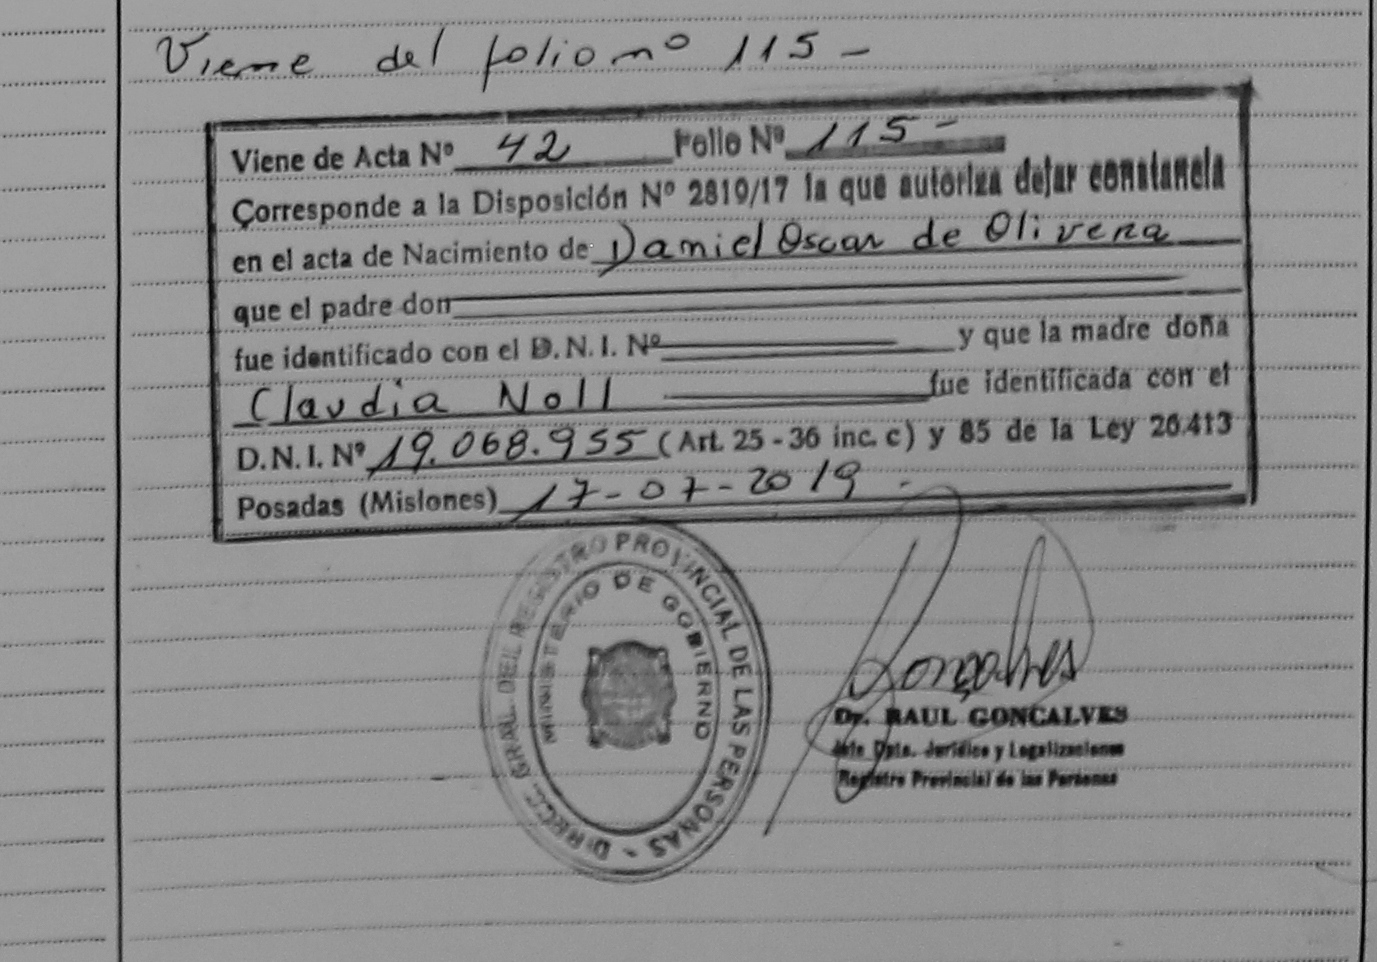 Viene del folio nº 115 -
Viene de Acta Nº 42 Folio Nº 115 -
Corresponde a la Disposición Nº 2819/17 la que autoriza dejar constancia
en el acta de Nacimiento de Daniel Oscar de Olivera
que el padre don
fue identificado con el D.N.I. Nº y que la madre doña
Claudia Noll fue identificada con el
D.N.I. Nº 19.068.955 (Art. 25 - 36 inc. c) y 85 de la Ley 26.413
Posadas (Misiones) 17-07-2019.
DIRECC. GRAL. DEL REGISTRO PROVINCIAL DE LAS PERSONAS -
MINISTERIO DE GOBIERNO
Gonçalves
Dr. RAUL GONCALVES
Jefe Dpto. Jurídico y Legalizaciones
Registro Provincial de las Personas